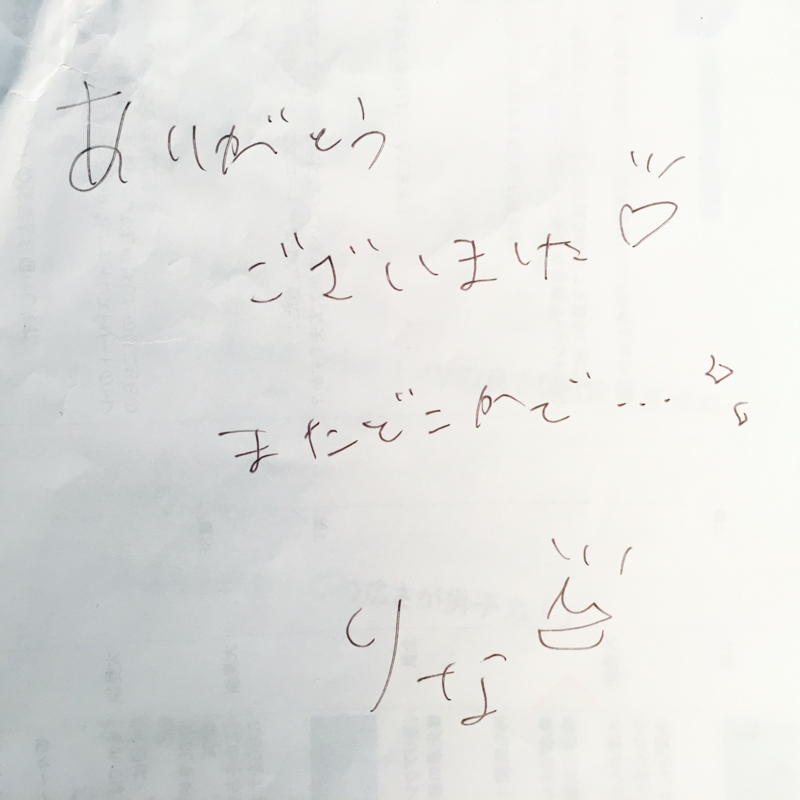 ありがとう
ございました♡
またどこかで...
りな